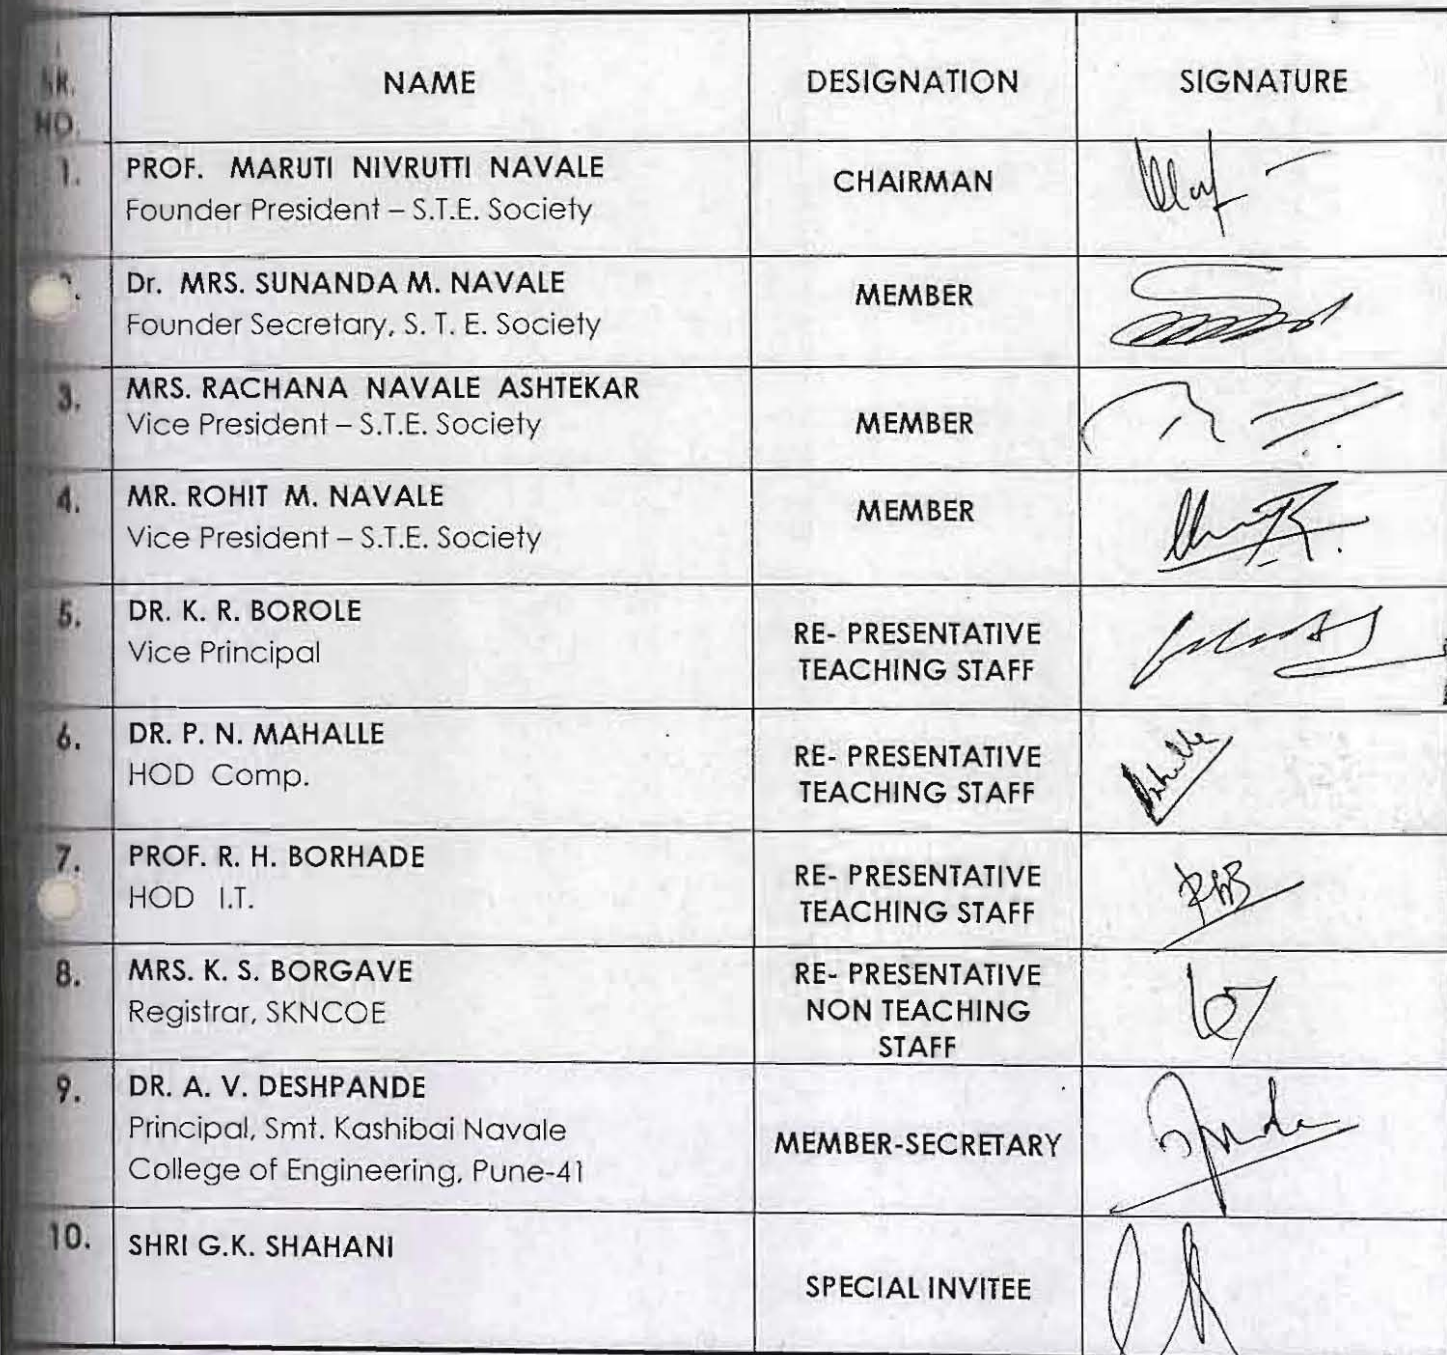 SR.
NO.
NAME
DESIGNATION
SIGNATURE
1.
PROF. MARUTI NIVRUTTI NAVALE
Founder President – S.T.E. Society
CHAIRMAN
Dr. MRS. SUNANDA M. NAVALE
Founder Secretary, S. T. E. Society
MEMBER
3.
MRS. RACHANA NAVALE ASHTEKAR
Vice President – S.T.E. Society
MEMBER
4.
MR. ROHIT M. NAVALE
Vice President – S.T.E. Society
MEMBER
5.
DR. K. R. BOROLE
Vice Principal
RE- PRESENTATIVE
TEACHING STAFF
6.
DR. P. N. MAHALLE
HOD Comp.
RE- PRESENTATIVE
TEACHING STAFF
7.
PROF. R. H. BORHADE
HOD I.T.
RE- PRESENTATIVE
TEACHING STAFF
8.
MRS. K. S. BORGAVE
Registrar, SKNCOE
RE- PRESENTATIVE
NON TEACHING
STAFF
9.
DR. A. V. DESHPANDE
Principal, Smt. Kashibai Navale
College of Engineering, Pune-41
MEMBER-SECRETARY
10.
SHRI G.K. SHAHANI
SPECIAL INVITEE